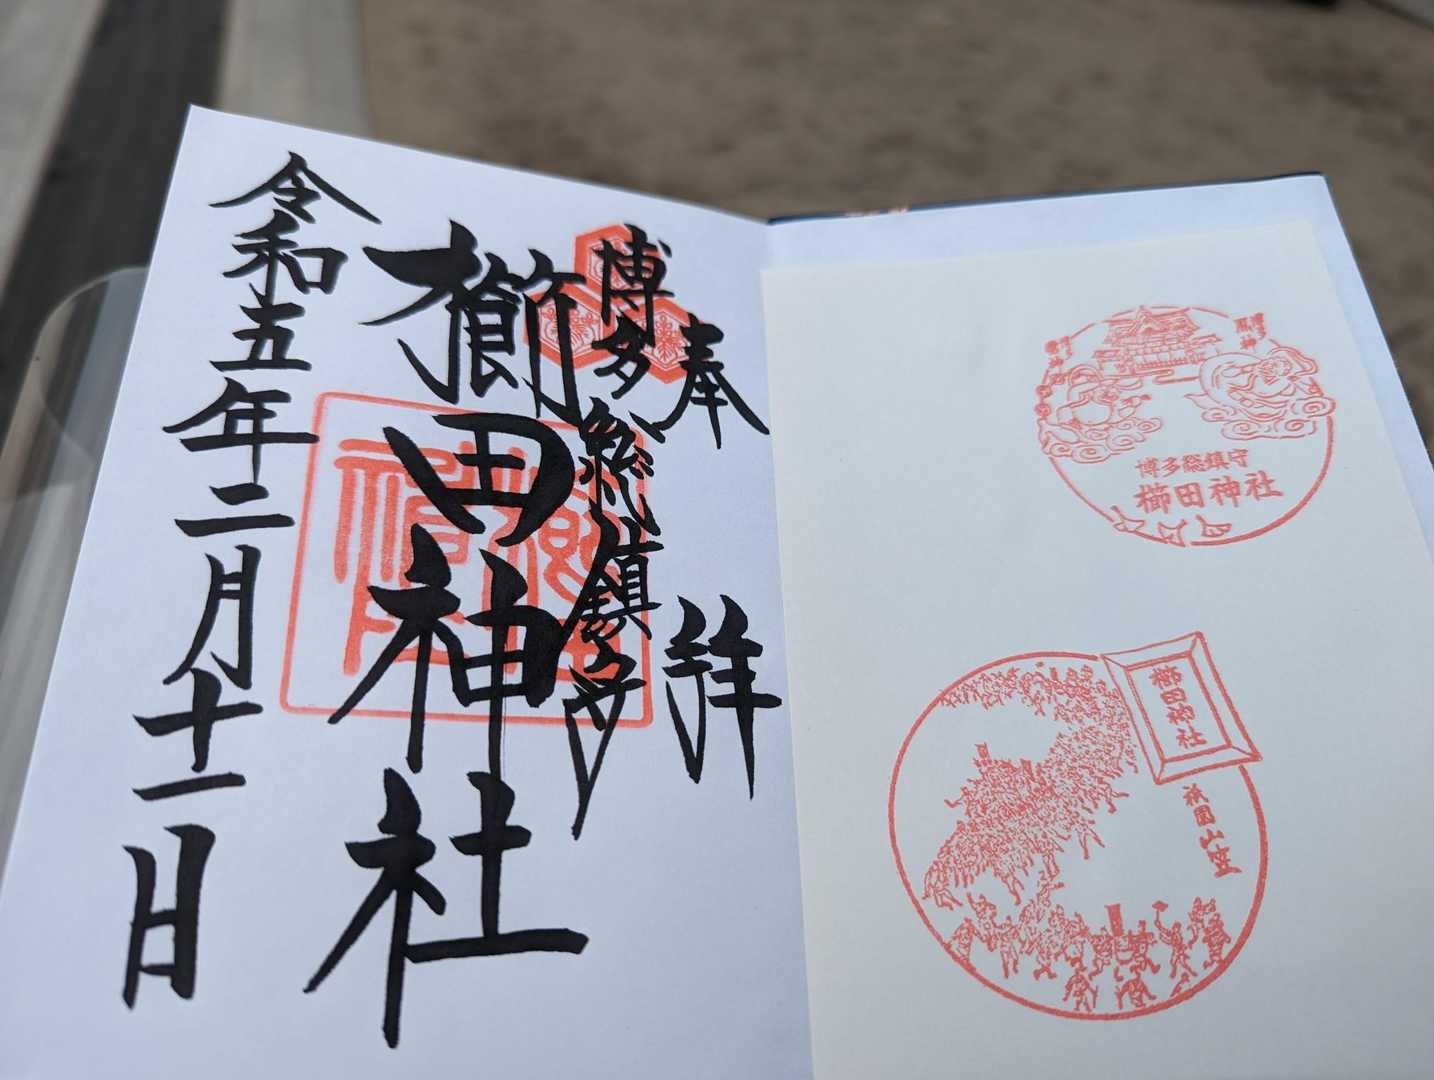 奉拝
博多総鎮守
櫛田神社
令和五年二月十一日
風神
博多総鎮守
櫛田神社
櫛田神社
祇園山笠